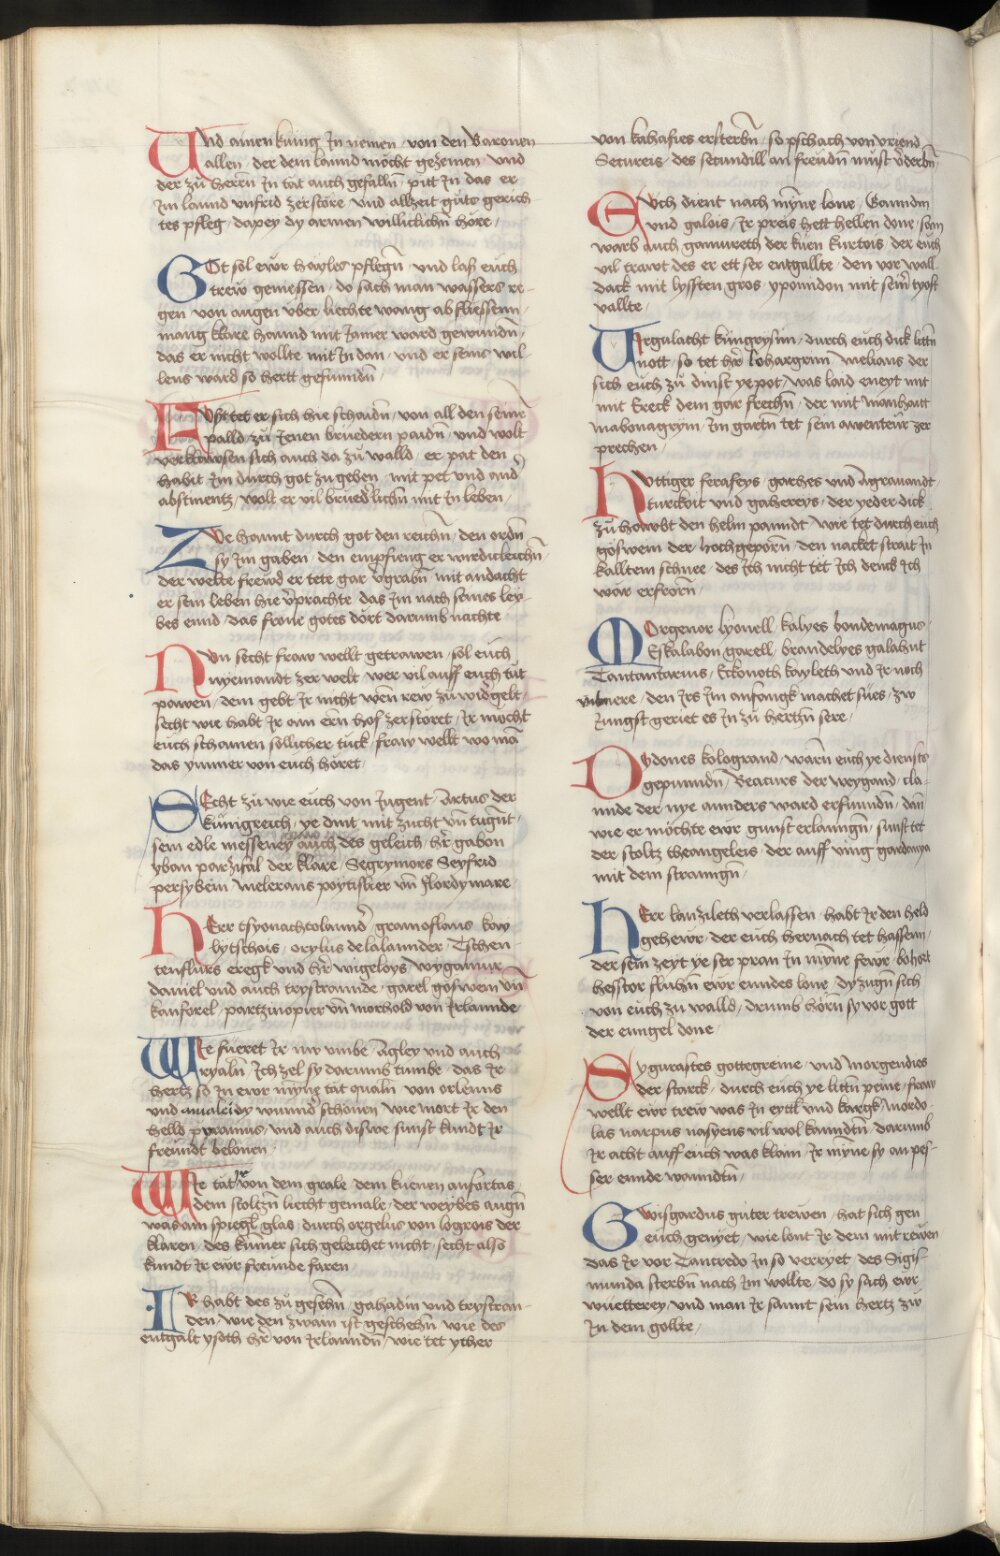 Und ainen kunig Jn nemen · von den Baronen
allen · der dem lannd möcht gezemen · und
der zů herrñ Jn tät auch gefallñ · pitt Jn das er
Jm lannd unfrid zerstöre · und allzeit gůts gerich
tes pfleg · dapey dy armen willicklichñ höre ·
Got sol ewr hayles pflegñ · und lass euch
trew geniessen · do sach man wassers re-
gen von augen über liechte wang abfliessenn ·
mang klare hannd mit Jamer ward gewundñ ·
das er nicht wollte mit Jn dan · und er seins wil-
lens ward so hertt gefunndñ ·
tet er sich hie schaidñ · von all den seinñ
palld · zů Jenen brüedern paidñ · und wolt
verklawsen sich auch da zů walld · er pat den
habit Jm durch got zu geben · mit pet und and
abstinentz · wolt er vil bruedlichñ mit Jn leben ·
Ze hannt durch got den reichñ · den ordñ
sy Jm gaben · den empfieng er wirdicleichñ
der wellte frewd er tete gar vgrabñ · mit andacht
er sein leben hie vprachte · das Jm nach seines ley-
bes ennd · das fronr gotes dort darumb nachte
Nun secht fraw wellt getrawen · sol euch
nyemandt zer welt · wer vil auff euch tůt
pawen · dem gebt Jr nicht wen rew zů widgelt ·
secht wie habt Jr ain ern hof zerstöret · Jr möcht
euch schamen söllicher tück · fraw wellt wo mã
das ymmer von euch höret ·
Secht zů wie euch von Jugent · Artus der
kunigreich · ye dint mit zucht vñ tugñt ·
sein edle messeney auch des geleich · hr gabon
yban parzifal der klare · Segrymors Seyfrid
persybein Melerans poytislier vñ flordymare ·
Herr tsyonachtolannd · gramoflans kay
lytschois · orylus de lalannder · Tschen-
tenflurs eregk und hr wigeloys wygamur
daniel und auch trystrannde · garel goswein vñ
kanforel · partzinopier vñ morhold von Jrlannde
Wie fueret Jr nw umbe Agley und auch
ryalin Jch zel sy darumb tumbe · das Jr
hertz so Jn ewr mynne tät qualñ · von orlenns
und amaleidy wunnd schonen · wie mort Jr den
helld pyramus · und auch diswe sunst kündt Jr
freundt belonen ·
Wie tat Jr von dem grale · dem kuenen anfortas
dem stoltzñ liecht gemale · der weybes augñ
was ain spiegl glas · durch orgelus von logrois der
klaren · des kumer sich geleichet nicht · secht also
kundt Jr ewr freunde faren
Ir habt des zu gesehñ · gahadin und trystran-
den · wie den zwain ist geschehñ · wie des
entgalt ysoth hr von Jrlanndñ · wie tet yther
von kahafies ersterbñ · so pschach von vriend
Secureis · des secundill an freudñ must vderbñ ·
Euch dient nach mynne lone · Gamdin
und galois · Jr preis hett hellen done · sein
warb auch gamureth der kuen kurtois · der euch
vil trawt des er ett ser entgallte · den vor wall
dack mit lyssten gros · ypomidon mit seinr tyost
vallte ·
Urgulacht kungrysin · durch euch dick littñ
nott · so tet hr lohargrim · Melians der
sich euch zů dinst ye pot · was laid eneyt mit
mit Ereck dem gar frechñ · der mit manhait
mabonagrym · Jm gartñ tet sein awentewr zer
prechen ·
Huttiger ferafeys · garhes und Agrauandt ·
turckoit und gahereys · der yeder dick
zů hawbt den helm panndt · wie tet durch euch
goswein der hochgeporñ · den nacket strait Jn
kalltem schnee · des Jch nicht tet Jch denck Jch
wär erfrorñ ·
Morgenor lyonell · kalyes bondemagus
Eskalabon garell · brandelyes galahut
Tantantarius · Eckonoth kayleth und Jr noch
vil mere · den Jrs Jm anfangk machet süss · zw
Jungst geriet es Jn zů hertzñ sere ·
Dydones kologrand · warñ euch ye dienstes
gepunndñ · Beacurs der weygand · cla-
unde der nye annders ward erfunndñ · dañ
wie er möchte ewr gunst erlanngñ · sunst tet
der stoltz theangeleis · der auff ving gardonya
mit dem stranngñ ·
Herr lanzileth verlassen · habt Jr den held
gehewr · der euch hernach tet hassenn ·
der sein zeyt ye ser pran Jn mynne fewr · bohort
hesstor fluhñ ewr enndes lone · dy zugñ sich
von euch zů walld · drumb hörñ sy vor gott
der enngel done ·
Sygurastes gottegreine · und Morgendies
der starck · durch euch ye littñ peine · fraw
wellt ewr trew was Jn eyttl und kargk · Mordo-
las narpus nasyens vil wol kanndtñ · darumb
Jr acht auff euch was klain · Jr mynne sy an pes-
ser ennde wanndtñ ·
Gwisgardus guter trewen · hat sich gen
euch genyet · wie lont Jr dem mit rewen
das Jr vor Tancredo Jn so verryet · des Sigis-
munda sterbñ nach Jm wollte · do sy sach ewr
wuetterey · und man Jr sannt sein hertz zw
Jn dem gollte ·